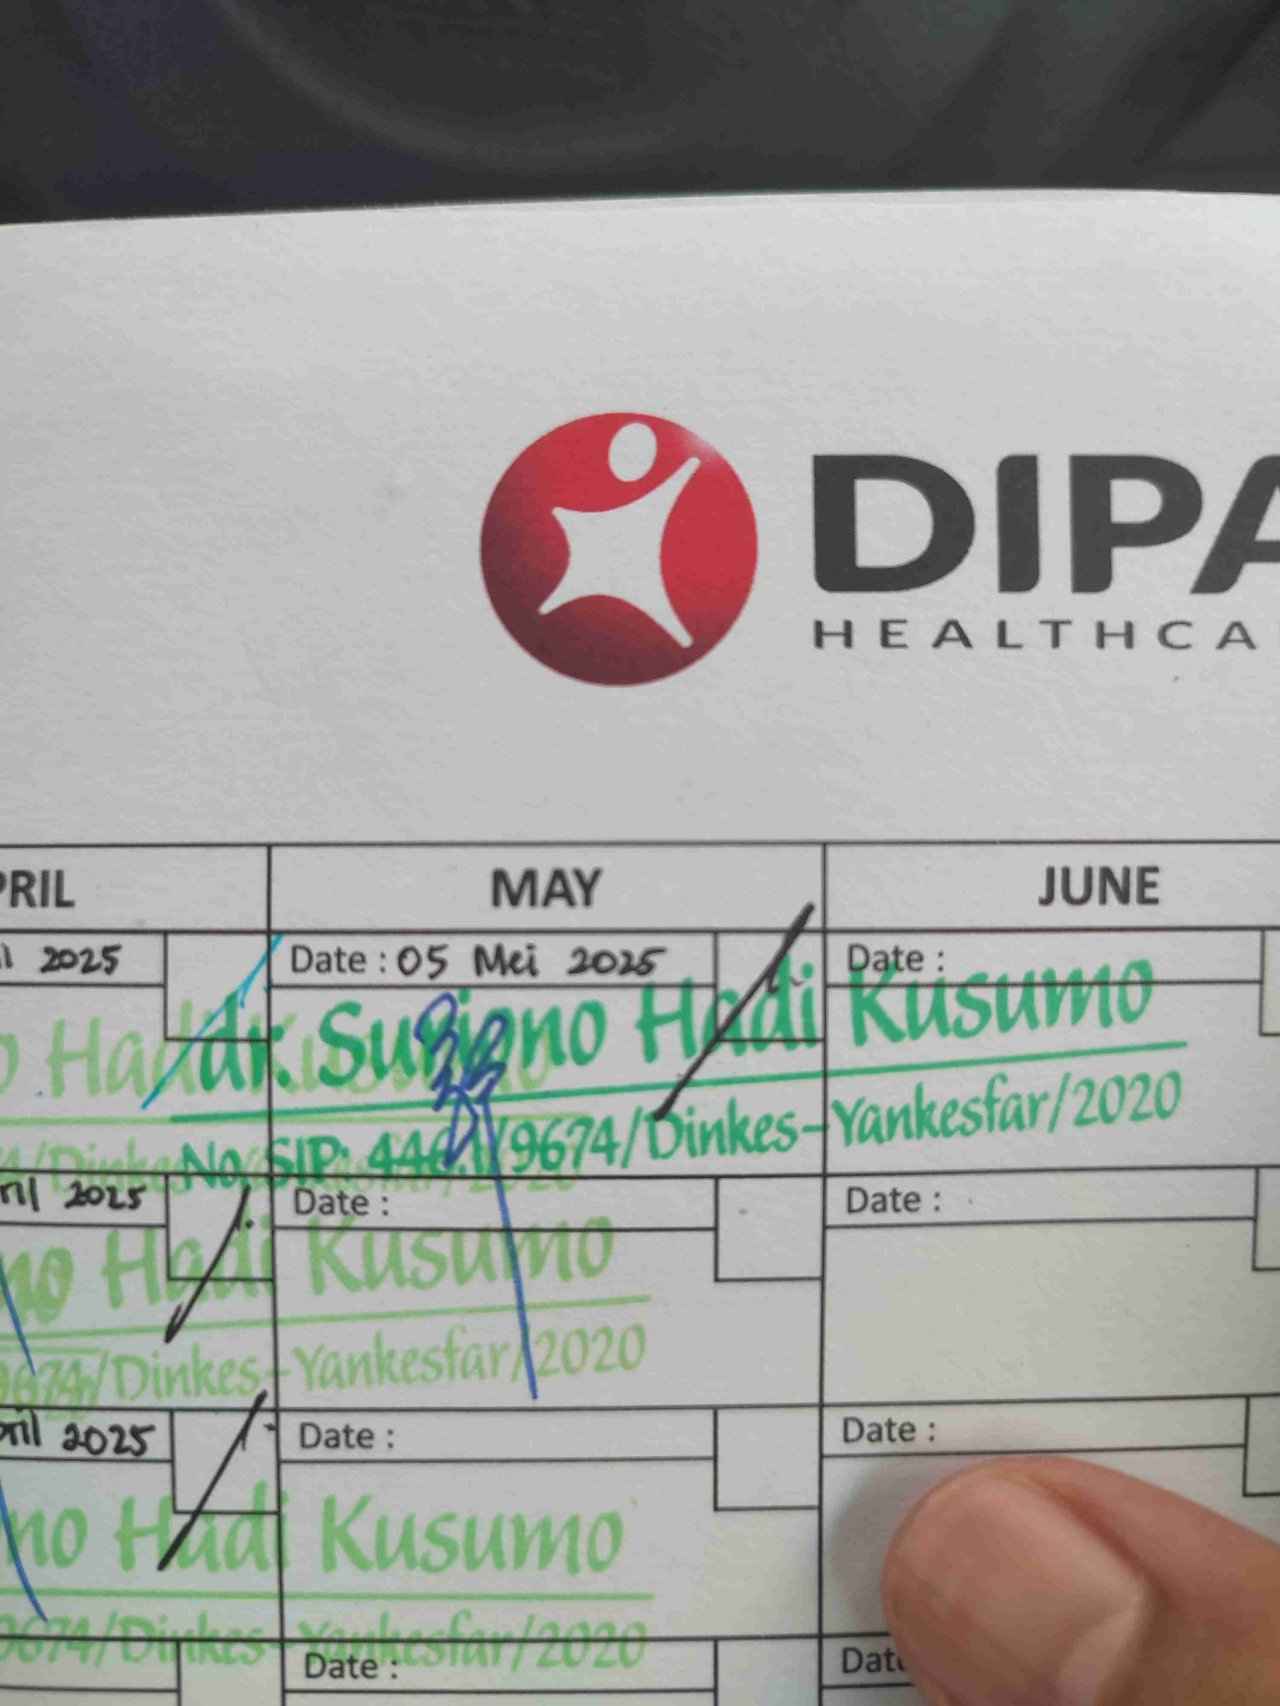 DIPA
HEALTHCA
PRIL MAY JUNE
2025 Date : 05 Mei 2025 Date :
dr. Suriono Hadi Kusumo
No. SIP: 446.1/9674/Dinkes-Yankesfar/2020
2025 Date : Date :
no Hadi Kusumo
9674/Dinkes-Yankesfar/2020
pril 2025 Date : Date :
no Hadi Kusumo
9674/Dinkes-Yankesfar/2020
Date : Date